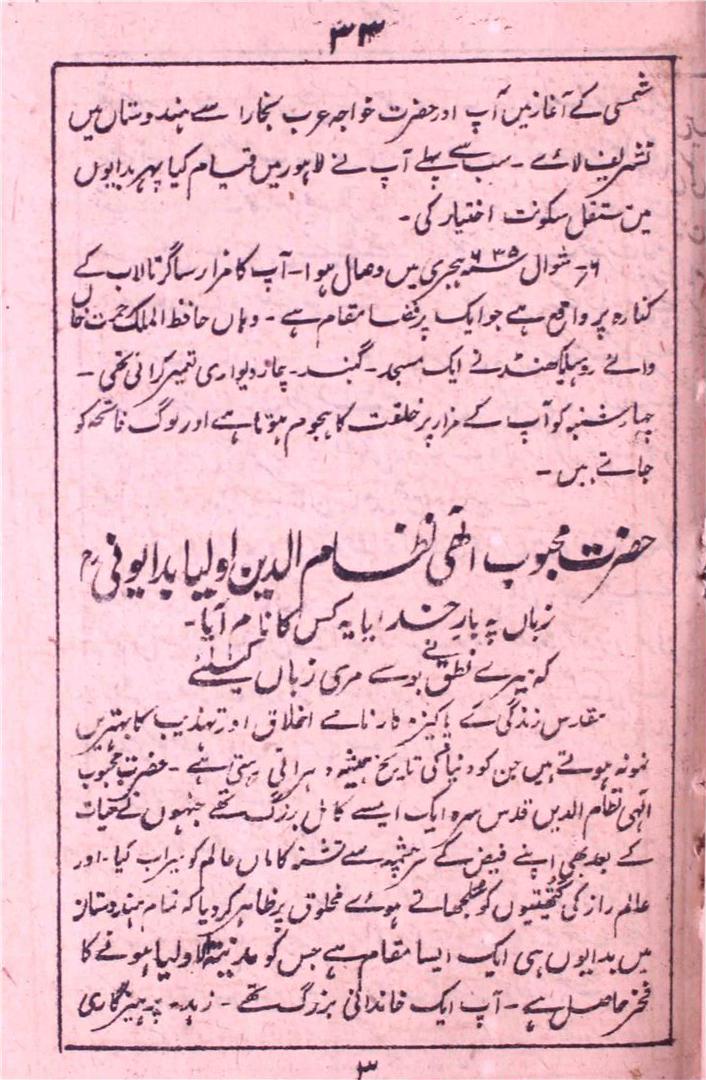 ۳۳
شمسی کے آغاز میں آپ اور حضرت خواجہ عرب بخارا سے ہندوستان میں
تشریف لائے ۔ سب سے پہلے آپ نے لاہور میں قیام کیا پھر بدایوں
میں مستقل سکونت اختیار کی ۔
۶؍ شوال ۶۳۵ ہجری میں وصال ہوا ۔ آپ کا مزار ساگر تالاب کے
کنارہ پر واقع ہے جو ایک پر فضا مقام ہے ۔ وہاں حافظ الملک رحمت خاں
والئے روہیلکھنڈ نے ایک مسجد ۔ گنبد ۔ چار دیواری تعمیر کرائی تھی ۔
چہار شنبہ کو آپ کے مزار پر خلقت کا ہجوم ہوتا ہے اور لوگ فاتحہ کو
جاتے ہیں ۔
حضرت محبوب الٰہی نظام الدین اولیا بدایونی رح
زباں پہ بارِ خدایا یہ کس کا نام آیا ۔
کہ میرے نطق نے بوسے مری زباں کیلئے
مقدس زندگی کے پاکیزہ کارنامے اخلاق اور تہذیب کا بہترین
نمونہ ہوتے ہیں جن کو دنیا کی تاریخ ہمیشہ دہراتی رہتی ہے ۔ حضرت محبوب
الٰہی نظام الدین قدس سرہ ایک ایسے کامل بزرگ تھے جنہوں نے حیات
کے بعد بھی اپنے فیض کے سرچشمہ سے تشنہ کاماں عالم کو سیراب کیا ۔ اور
عالم راز کی گتھیوں کو سلجھاتے ہوئے مخلوق پر ظاہر کر دیا کہ تمام ہندوستان
میں بدایوں ہی ایک ایسا مقام ہے جس کو مدینۃ الاولیا ہونے کا
فخر حاصل ہے ۔ آپ ایک خاندانی بزرگ تھے ۔ زہد ۔ پرہیزگاری
۳